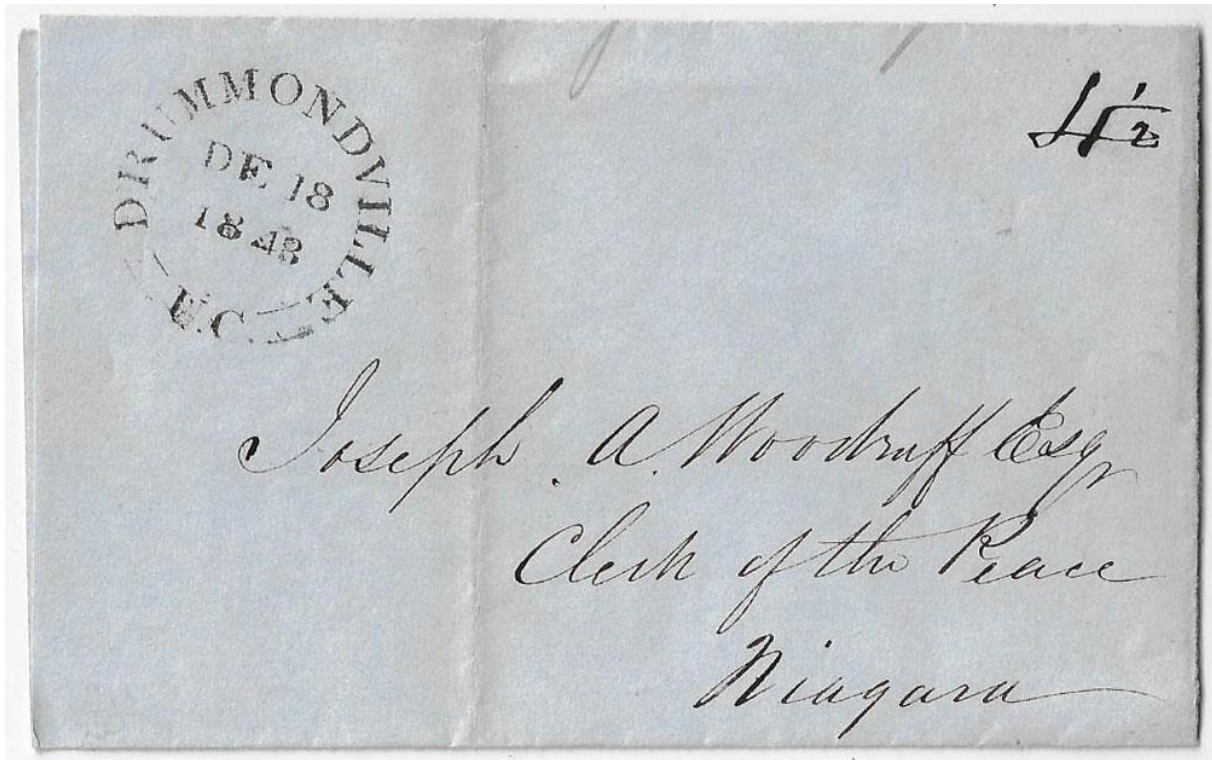 DRUMMONDVILLE
DE 18
1848
U.C.
4 1/2
Joseph. A. Woodruff Esqr
Clerk of the Peace
Niagara